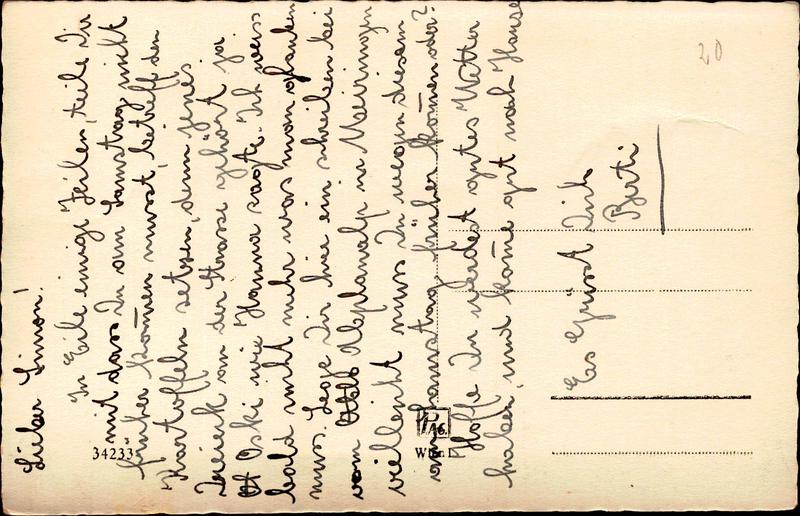 Lieber Simon!
In Eile einige Zeilen, teile Dir
mit dass Du am Samstag nicht
früher kommen musst, betreff den
Kartoffeln setzen, denn jenes
Dreieck an der Strasse gehört ja
Oski wie Hanna sagte. Ich weiss
bald nicht mehr was man glauben
muss. Lege Dir hier ein schreiben bei
vom Abplanalp in Meiringen
vielleicht muss Du wegen diesem
am Samstag früher kommen oder?
Hoffe Du werdest gutes Wetter
haben, und komme gut nach Hause
Es Grüsst Dich
Berti
20
34233
PAG.
Wien I